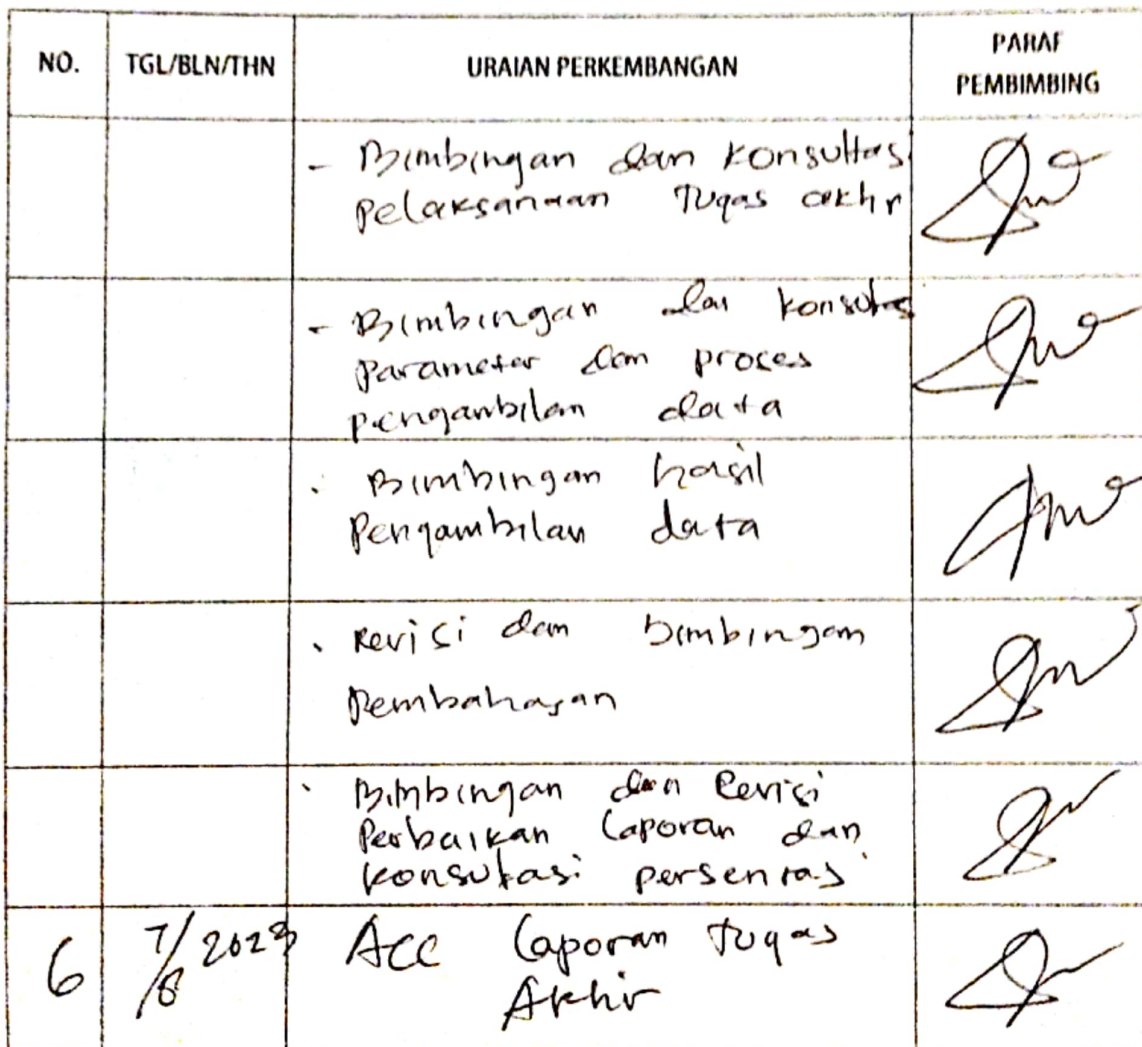 NO. TGL/BLN/THN URAIAN PERKEMBANGAN PARAF PEMBIMBING
- Bimbingan dan konsultas
pelaksanaan Tugas akhr
- Bimbingan dan konsultas
Parameter dan proses
pengambilan data
. Bimbingan hasil
Pengambilan data
. Revisi dan bimbingan
Pembahasan
. Bimbingan dan Revisi
Perbaikan Laporan dan
konsultasi persentasi
6 7/8 2023 Acc Laporan tugas
Akhir